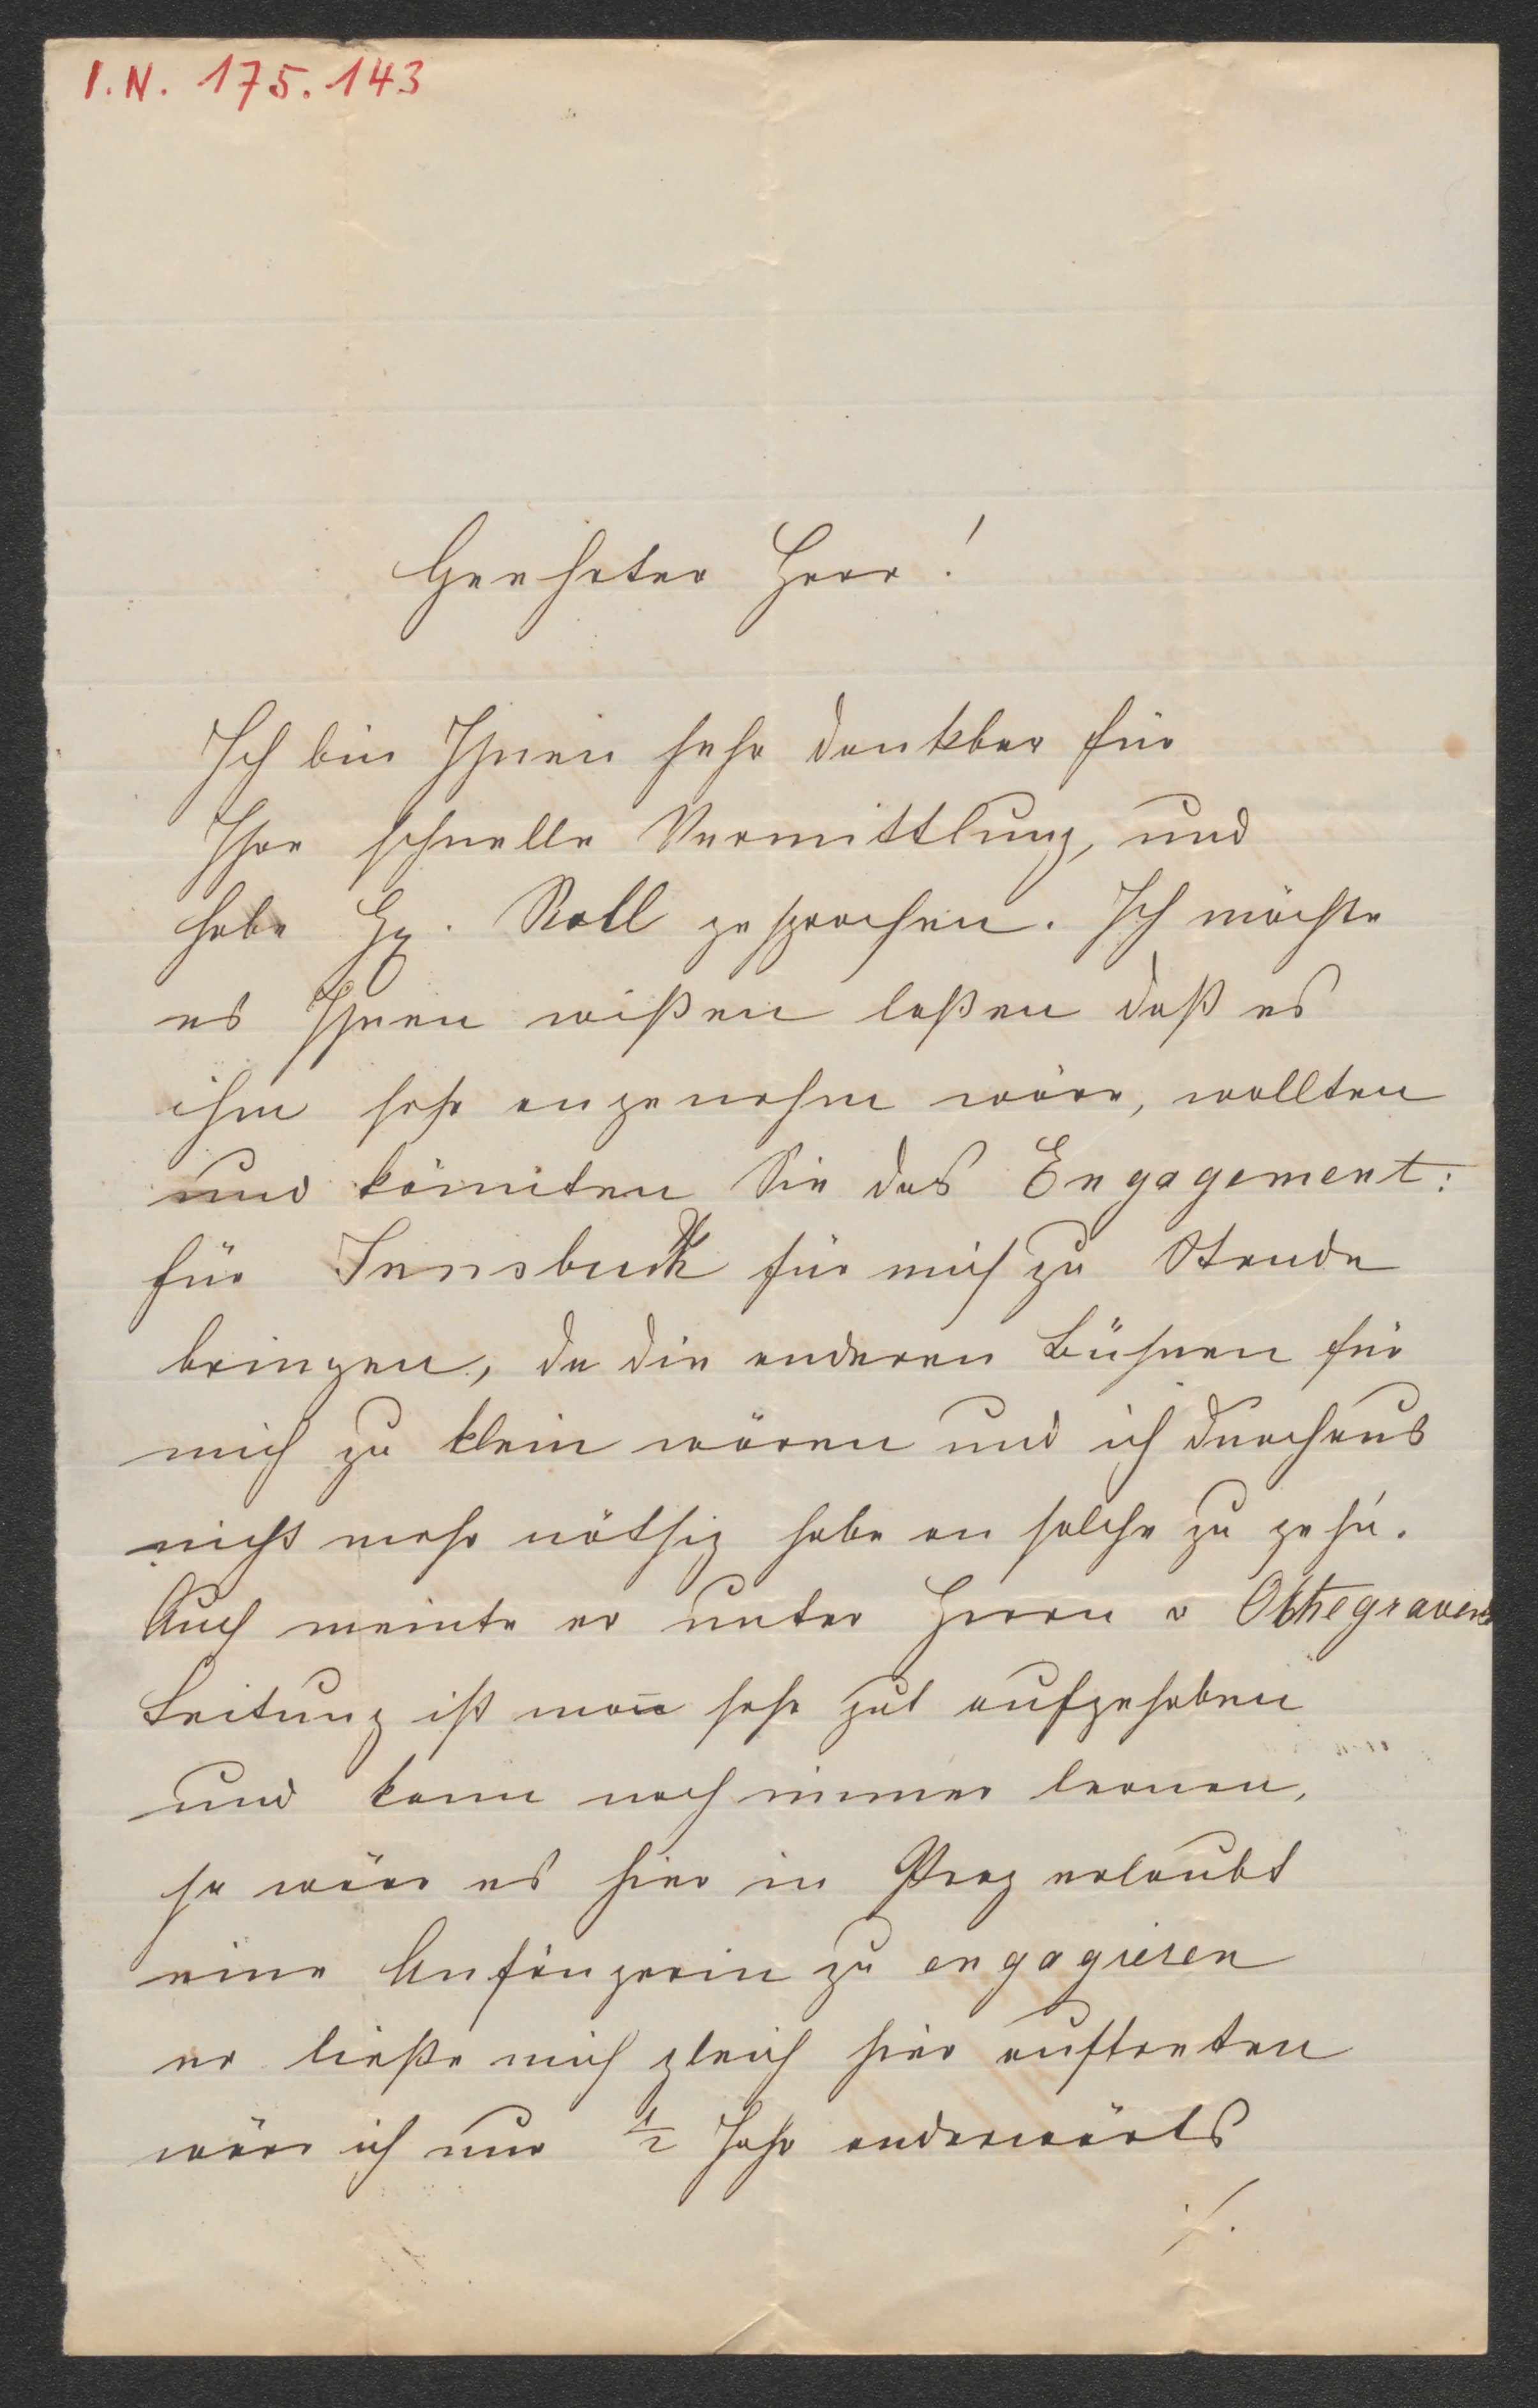 I.N. 175.143
Geehrter Herr!
Ich bin Ihnen sehr dankbar für
Ihre schnelle Vermittlung, und
habe H. Roll gesprochen. Ich möchte
es Ihnen wißen laßen daß es
ihm sehr angenehm wäre, wollten
und könnten Sie das Engagement:
für Innsbuck für mich zu Stande
bringen, da die anderen Bühnen für
mich zu klein wären und ich durchaus
nicht mehr nöthig habe an solche zu gehn.
Auch meinte er unter Herrn v
Leitung ist man sehr gut aufgehoben
und kann noch immer lernen,
so wäre es hier in Prag erlaubt
eine Anfängerin zu engagieren
er ließe mich gleich hier auftreten
wäre ich nur 1/2 Jahr anderwärts
./.